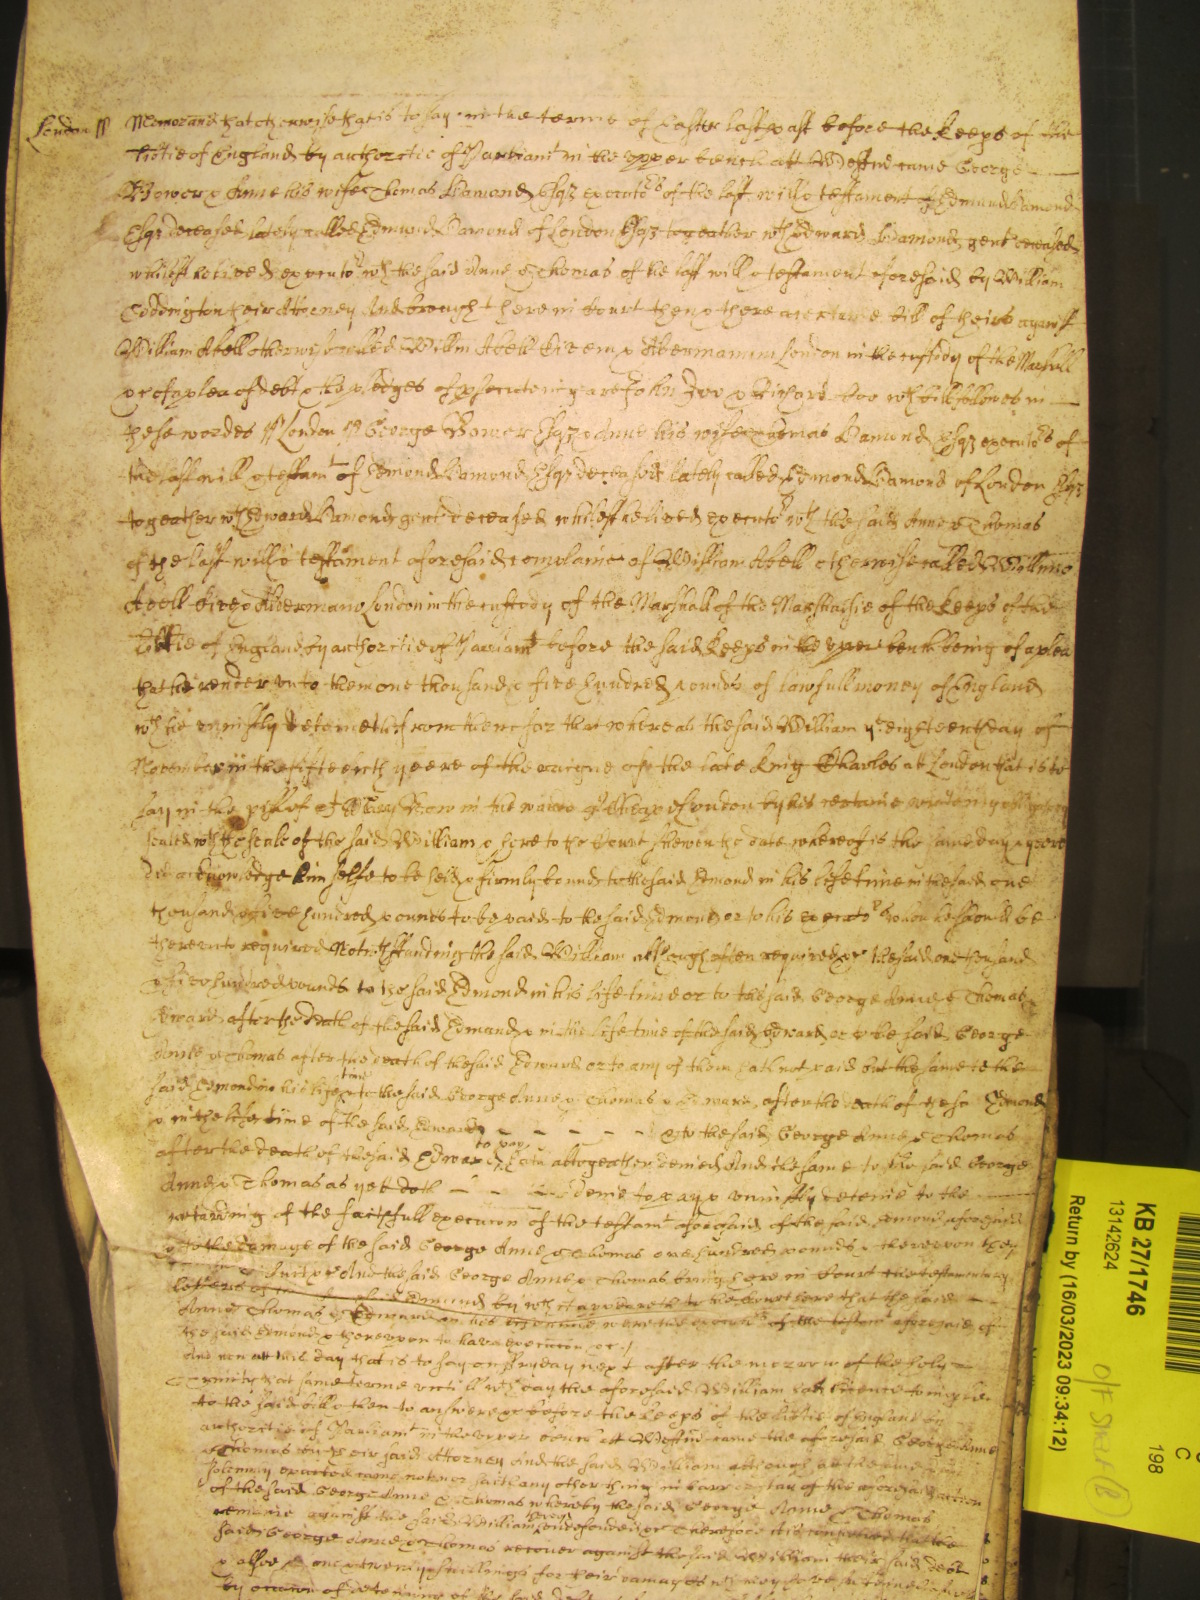 London ss Memorand that otherwise that is to say in the terme of Easter last past before the Keeps of the
libtie of England by authoritie of Parliamt in the upper bench att Westmr came George
Bower & Anne his wife Thomas Hamond Esqr executors of the last will & testament of Edmund Hamond
Esqr deceased lately called Edmund Hamond of London Esqr togeather wth Edward Hamond gent deceased
whilest he lived executor wth the said Anne & Thomas of the last will & testament aforesaid by William
Coddington their Attorney And brought here in Court then & there a certaine bill of theirs against
William Abell otherwise called Willm Abell Civem & Aldermanum London in the custody of the Marshall
&c of a plea of debt & the pledges of prosecuting are John Doo & Richard Roo wch bill followes in
these wordes ss London ss George Bower Esqr & Anne his wife Thomas Hamond Esqr executors of
the last will & testamt of Edmond Hamond Esqr deceased lately called Edmond Hamond of London Esqr
togeather wth Edward Hamond gent deceased whilest he lived executor wth the said Anne & Thomas
of the last will & testament aforesaid complaine of William Abell otherwise called Willmo
Abell Civi & Aldermano London in the custody of the Marshall of the Marshalsie of the Keeps of the
libtie of England by authoritie of Parliamt before the said Keeps in the upper bench being of a plea
that he render unto them one thousand & five hundred pounds of lawfull money of England
wch he uniustly deteineth from them for that whereas the said William ye eighteenth day of
November in the fifteenth yeere of the raigne of the late King Charles at London that is to
say in the pish of St Mary Bow in the ward of Cheap London by his certaine writing obligatory
sealed wth the seale of the said William & here to the Court shewen the date whereof is the same day & yeere
did acknowledge himselfe to be held & firmly bound to the said Edmond in his life time in the said one
thousand & five hundred pounds to be paid to the said Edmond or to his executors when he should be
thereunto required Notwthstanding the said William although often required &c the said one thousand
& five hundred pounds to the said Edmond in his life time or to the said George Anne & Thomas &
Edward after the death of the said Edmond & in the life time of the said Edward or to the said George
Anne & Thomas after the death of the said Edward or to any of them hath not paid but the same to the
said Edmond in his life time & to the said George Anne & Thomas & Edward after the death of the sd Edmond
& in the life time of the said Edward - - - - - & to the said George Anne & Thomas
after the death of the said Edward to pay hath altogeather denied And the same to the said George
Anne & Thomas as yet doth - - denie to pay & uniustly deteine to the
retarding of the faithfull execucon of the testamt aforesaid of the said Edmond aforesaid
& to the damage of the said George Anne & Thomas one hundred pounds & thereupon they
bring suit &c And the said George Anne & Thomas bring here in Court the testamentary
letters of the said Edmund by wch it appeareth to the Court here that the said
Anne Thomas & Edward in his life time were the executors of the testamt aforesaid of
the said Edmond & thereupon to have execucon &c
And now att this day that is to say on Fryday next after the morrow of the holy
Trinity that same terme untill wch day the aforesaid William had licence to imparle
to the said bill & then to answere &c before the Keeps of the libtie of England by
authoritie of Parliamt in the upper bench att Westmr came the aforesaid George Anne
& Thomas by their said Attorney And the said William although at the same day
solemnly exacted came not nor saith any other thing in barr or stay of the aforesaid action
of the said George Anne & Thomas whereby the said George Anne & Thomas
remaine against the said William therein undefended &c Therefore it is considered that the
said George Anne & Thomas recover against the said William their said debt
& alsoe & one & twenty shillings for their damages wch they have susteined aswell
by occasion of deteining of the said debt
KB 27/1746
13142624
Return by (16/03/2023 09:34:12)
198
C
O/F SHELF (B)